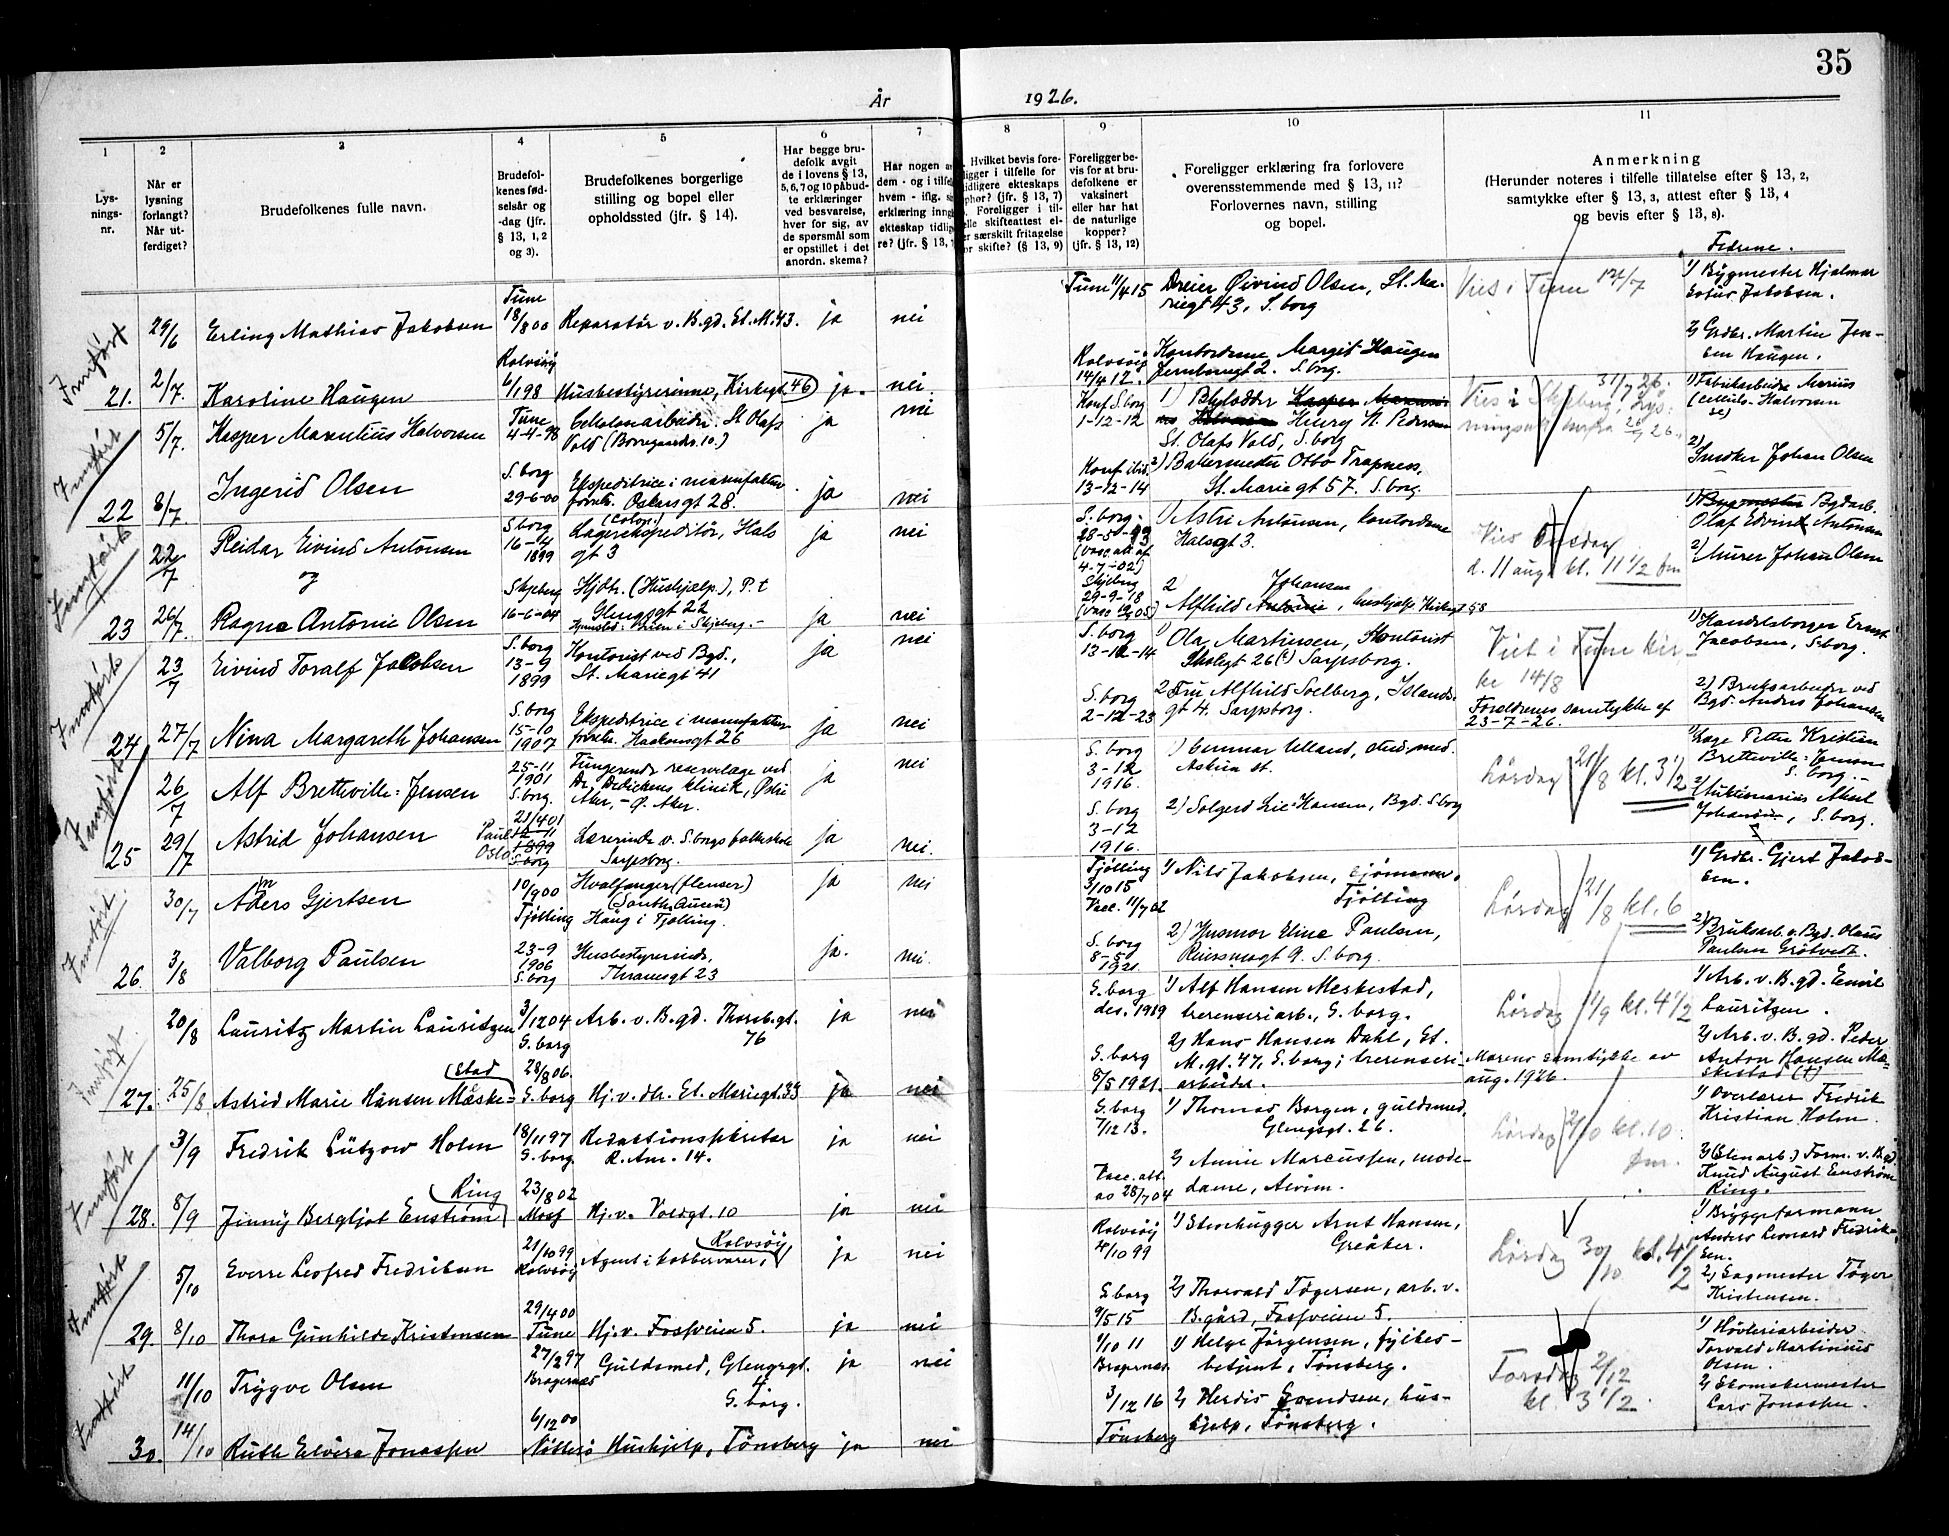 35
År 1926.
1 2 3 4 5 6 7 8 9 10 11
Lys-
nings-
nr.
Når er
lysning
forlangt?
Når ut-
ferdiget?
Brudefolkenes fulle navn.
Brudefol-
kenes fød-
selsår og
-dag (jfr.
§ 13, 1, 2
og 3).
Brudefolkenes borgerlige
stilling og bopel eller
opholdssted (jfr. § 14).
Har begge bru-
defolk avgit
de i lovens § 13,
5, 6, 7 og 10 påbud-
te erklæringer
ved besvarelse,
hver for sig, av
de spørsmål som
er opstillet i det
anordn. skema?
Har nogen a
dem - og i tilfel
hvem - iflg.
erklæring inng
ekteskap tidlig
re? (jfr. § 13,
Hvilket bevis fore-
ligger i tilfelle for
tidligere ekteskaps
ophør? (jfr. § 13, 7)
Foreligger i til-
elle skifteattest el-
er særskilt fritagelse
or skifte? (§ 13, 9)
Foreligger be-
vis for at bru-
defolkene er
vaksinert
eller har hat
de naturlige
kopper?
(jfr. § 13, 12)
Foreligger erklæring fra forlovere
overensstemmende med § 13, 11?
Forlovernes navn, stilling
og bopel.
Anmerkning
(Herunder noteres i tilfelle tillatelse efter § 13, 2,
samtykke efter § 13, 3, attest efter § 13, 4
og bevis efter § 13, 8).
Fedrene.
Innført
21.
29/6
Erling Mathias Jakobsen
Tune
18/8 00
Reparatör v. B.gd. St. M. 43.
ja
nei
Tune 11/4 15
Dreier Øivind Olsen, St. Ma-
riegt 43, S.borg
Vies i Tune 17/7
1/ Bygmester Hjalmar
Jakobsen.
2/7.
Karoline Haugen
Rolvsöy
6/1 98
Husbestyrerinne, Kirkegt. 46
ja.
nei
Rolvsöy
14/4 12.
Kontordame Margit Haugen
Jernbanegt 2. S.borg.
2/ Grdbr. Martin Jen-
sen Haugen.
Innført
22
5/7.
Kasper Marentius Halvorsen
Tune
4-4-98
Celulosearbeider. St Olafs
Vold (Borregaards. 10.)
ja
nei
Konf S.borg
1-12-12
1) Henry N. Pedersen
St. Olafs Vold, S.borg
Vies i Skjeberg 31/7 26.
1) Fabrikarbeider Marius
Halvorsen
8/7.
Ingerid Olsen
S.borg
29-6-00
Ekspeditrice i manufaktur
forretn. Oskarsgt 28.
ja
nei
Konf ibid.
13-12-14
2) Bakermester Otto Trapness,
St. Mariegt 57. S.borg.
2) Snekker Johan Olsen
Innført
23
22/7
Reidar Eivind Antonsen
og
S.borg
16-4
1899
(Colon.)
Lagerekspeditör, Hals
gt 3
ja
nei
S.borg.
28-5-93
4-7-02)
1) Astri Antonsen, kontordame
Halsgt 3.
Vies Onsdag
d. 11 aug. kl. 11 1/2 fm
1) Bygmester Bgdarb.
Olaf Edvin Antonsen
26/7.
Ragna Antonie Olsen
Skjeberg
16-6-04
Hjdtr. (Hushjælp.), P.t
Glengsgt 22
i Skjeberg.-
ja
nei
Skjeberg
29-9-18
2 Johansen
Alfhild Antonie, hushjelp Kirkegt 58
2) Murer Johan Olsen
Innført
24
23/7
Eivind Toralf Jacobsen
S.borg
13-9
1899
Kontorist ved Bgd.,
St. Mariegt 41
ja
nei
S.borg
13-12-14
1) Ola Martinsen, Kontorist
Skolegt 26(?) Sarpsborg.
Viet i Tune kir-
ke 14/8
1) Handelsborger Ernst
Jacobsen, S.borg.
27/7
Nina Margareth Johansen
S.borg
15-10
1907
Ekspeditrice i manufaktur
forretn. Haakonsgt 26
ja
nei
S.borg
2-12-23
2 Fru Alfhild Soelberg, Islands-
gt 4. Sarpsborg.
Foreldrenes samtykke af
23-7-26.
2) Bruksarbeider ved
Bgd. Anders Johansen
Innført
25
26/7
Alf Bretteville-Jensen
25-11
1901
S.borg.
Fungerende reservelæge ved
Dr. Dedickens klinik, Østre
Aker, - Ø. Aker.
ja
nei
S.borg
3-12
1916.
1) Gunnar Ulland, stud.med.
Askim st.
Lørdag 21/8 kl. 3 1/2
1) Læge Petter Kristian
Bretteville-Jensen
S.borg.-
29/7
Astrid Johansen
21/4 01
Oslo
12-11
1899
S.borg
Lærerinde v. S.borgs folkeskole
Sarpsborg.
ja
nei.
S.borg
3-12
1916.
2) Solgerd Lie-Hansen, Bgd. S.borg
2/ Auktionarius Aksel
Johansen, S.borg.
Innført
26.
30/7
Anders Gjertsen
10/9 00
Tjölling
Hvalfanger (flenser)
Haug i Tjölling.
ja
nei
Tjölling
3/10 15
Vacc. 11/7 02
1/ Nils Jakobsen, sjömann,
Tjölling
Lørdag 21/8 kl. 6
1/ Grdbr. Gjert Jakob-
sen.
3/8
Valborg Paulsen
23-9
1906
S.borg
Husbestyrerinde,
Thranesgt 23
ja.
nei.
S.borg
8-5
1921.
2) Husmor Eline Paulsen,
S.borg.
2) Bruksarb. v. Bgd. Olaus
Paulsen Grötvedt.
Innført
27.
20/8
Lauritz Martin Lauritzen
3/12 04
S.borg
Arb. v. B.gd. Thorsb.gt.
76
ja
nei
S.borg
des. 1919
1/ Alf Hansen Meskestad,
S.borg.
Lørdag 11/9 kl. 4 1/2
1/ Arb. v. B.gd. Emil
Lauritzen.
25/8
Astrid Marie Hansen Mäske-
stad
28/8 06.
S.borg
Hj.v. dtr. St. Mariegt. 33
ja
nei
S.borg
8/5 1921.
2/ Hans Hansen Dahl, St.
M.gt. 47, S.borg;
arbeider.
Morens samtykke av
aug. 1926.
2/ Arb. v. B.gd. Peder
Anton Hansen Mä-
skestad (†)
Innført
28.
3/9
Fredrik Lützow Holm
18/11 97
S.borg.
Redaktionssekretær
R. Am. 14.
ja
nei
S.borg
7/12 13.
1/ Thomas Borgen, guldsmed,
Glengsgt. 26.
Lørdag 2/10 kl. 10
fm.
1/ Overlærer Fredrik
Kristian Holm.
8/9
Jinny Bergljot Enström
Ring
23/8 02
Moss
Hj.v. Voldgt. 10
ja
nei
Vacc. att.
av 28/7 04
2/ Annie Marcussen, mode-
dame, Alvim.
2/ (Stenarb.) Form. v. B.gd.
Knud August Enström
Ring.
Innført
29.
5/10
Sverre Leofred Fredriksen
21/10 99
Rolvsöy
Agent i kobbervarer, Rolvsöy
ja
nei
Rolvsöy
4/10 99
1/ Stenhugger Arnt Hansen,
Greåker.
Lørdag 30/10 kl. 4 1/2
1/ Bryggeformann
Anders Leonard Fredrik-
sen.
8/10
Thora Gunhilde Kristensen
29/4 00
Tune
Hj.v. Fossveien 5.
ja
nei
S.borg
9/5 15
2/ Thorvald Tögersen, arb. v.
B.gård, Fossveien 5.
2/ Sagmester Töger
Kristensen.
Innført
30.
11/10
Trygve Olsen
27/2 97
Bragernes
Guldsmed, Glengsgt.
4
S.borg.
ja
nei
1/10 11
Bragernes
1/ Helge Jörgensen, fylkes-
betjent, Tönsberg.
Torsdag 2/12
kl. 3 1/2.
1/ Hövleriarbeider
Torvald Martinius
Olsen.
14/10
Ruth Elvira Jonassen
6/12 00
Nötterö
Hushjelp, Tönsberg
ja
nei
3/12 16
Tönsberg
2/ Herdis Svendsen, hus-
hjelp, Tönsberg.
2/ Skomakermester
Lars Jonassen.